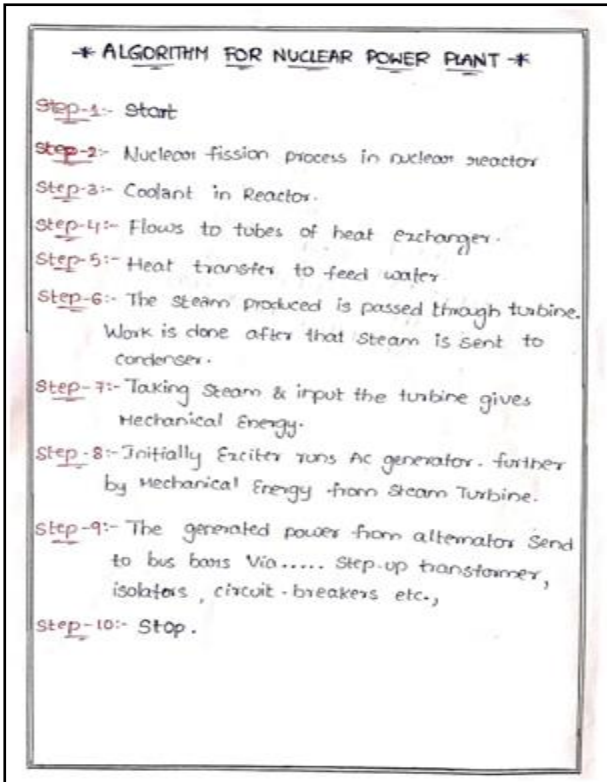 -* ALGORITHM FOR NUCLEAR POWER PLANT -*
Step-1:- Start
Step-2:- Nuclear fission process in nuclear reactor
Step-3:- Coolant in Reactor.
Step-4:- Flows to tubes of heat exchanger.
Step-5:- Heat transfer to feed water.
Step-6:- The steam produced is passed through turbine.
Work is done after that steam is sent to
condenser.
Step-7:- Taking steam & input the turbine gives
Mechanical Energy.
Step-8:- Initially Exciter runs Ac generator. further
by Mechanical Energy from Steam Turbine.
Step-9:- The generated power from alternator Send
to bus bars Via ..... Step-up transformer,
isolators, circuit-breakers etc.,
Step-10:- Stop.